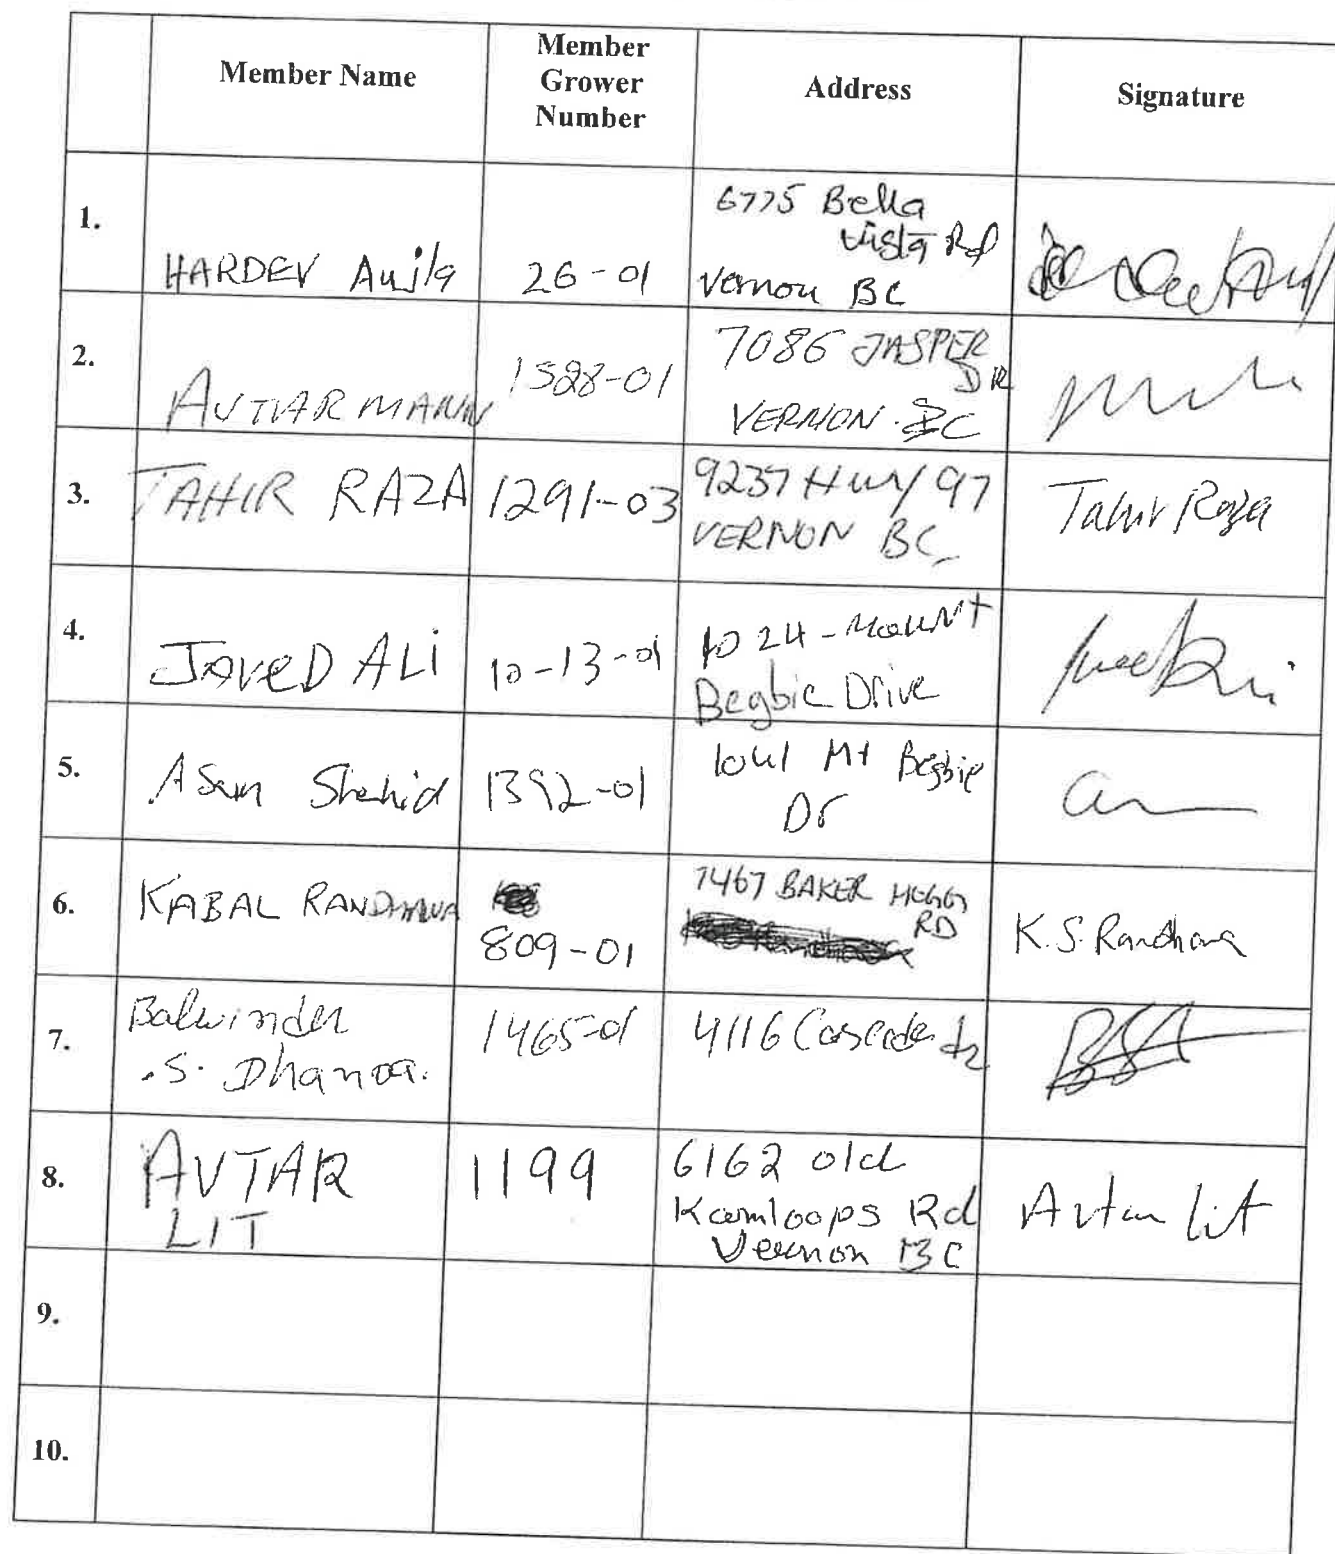 Member Name
Member
Grower
Number
Address
Signature
1.
HARDEV Aujla
26-01
6775 Bella
Vista Rd
Vernon BC
2.
AVTAR MANN
1528-01
7086 JASPER
DR
VERNON BC
3.
TAHIR RAZA
1291-03
9237 Hwy 97
VERNON BC
Tahir Raza
4.
JAVED ALi
10-13-01
1024-Mount
Begbie Drive
5.
Asim Shahid
1392-01
1041 Mt Begbie
Dr
6.
KABAL RANDHAWA
809-01
7467 BAKER HOGG
RD
K.S. Randhawa
7.
Balwinder
.S. Dhanoa.
1465-01
4116 Cascade dr
8.
AVTAR
LIT
1199
6162 old
Kamloops Rd
Vernon BC
Avtar Lit
9.
10.